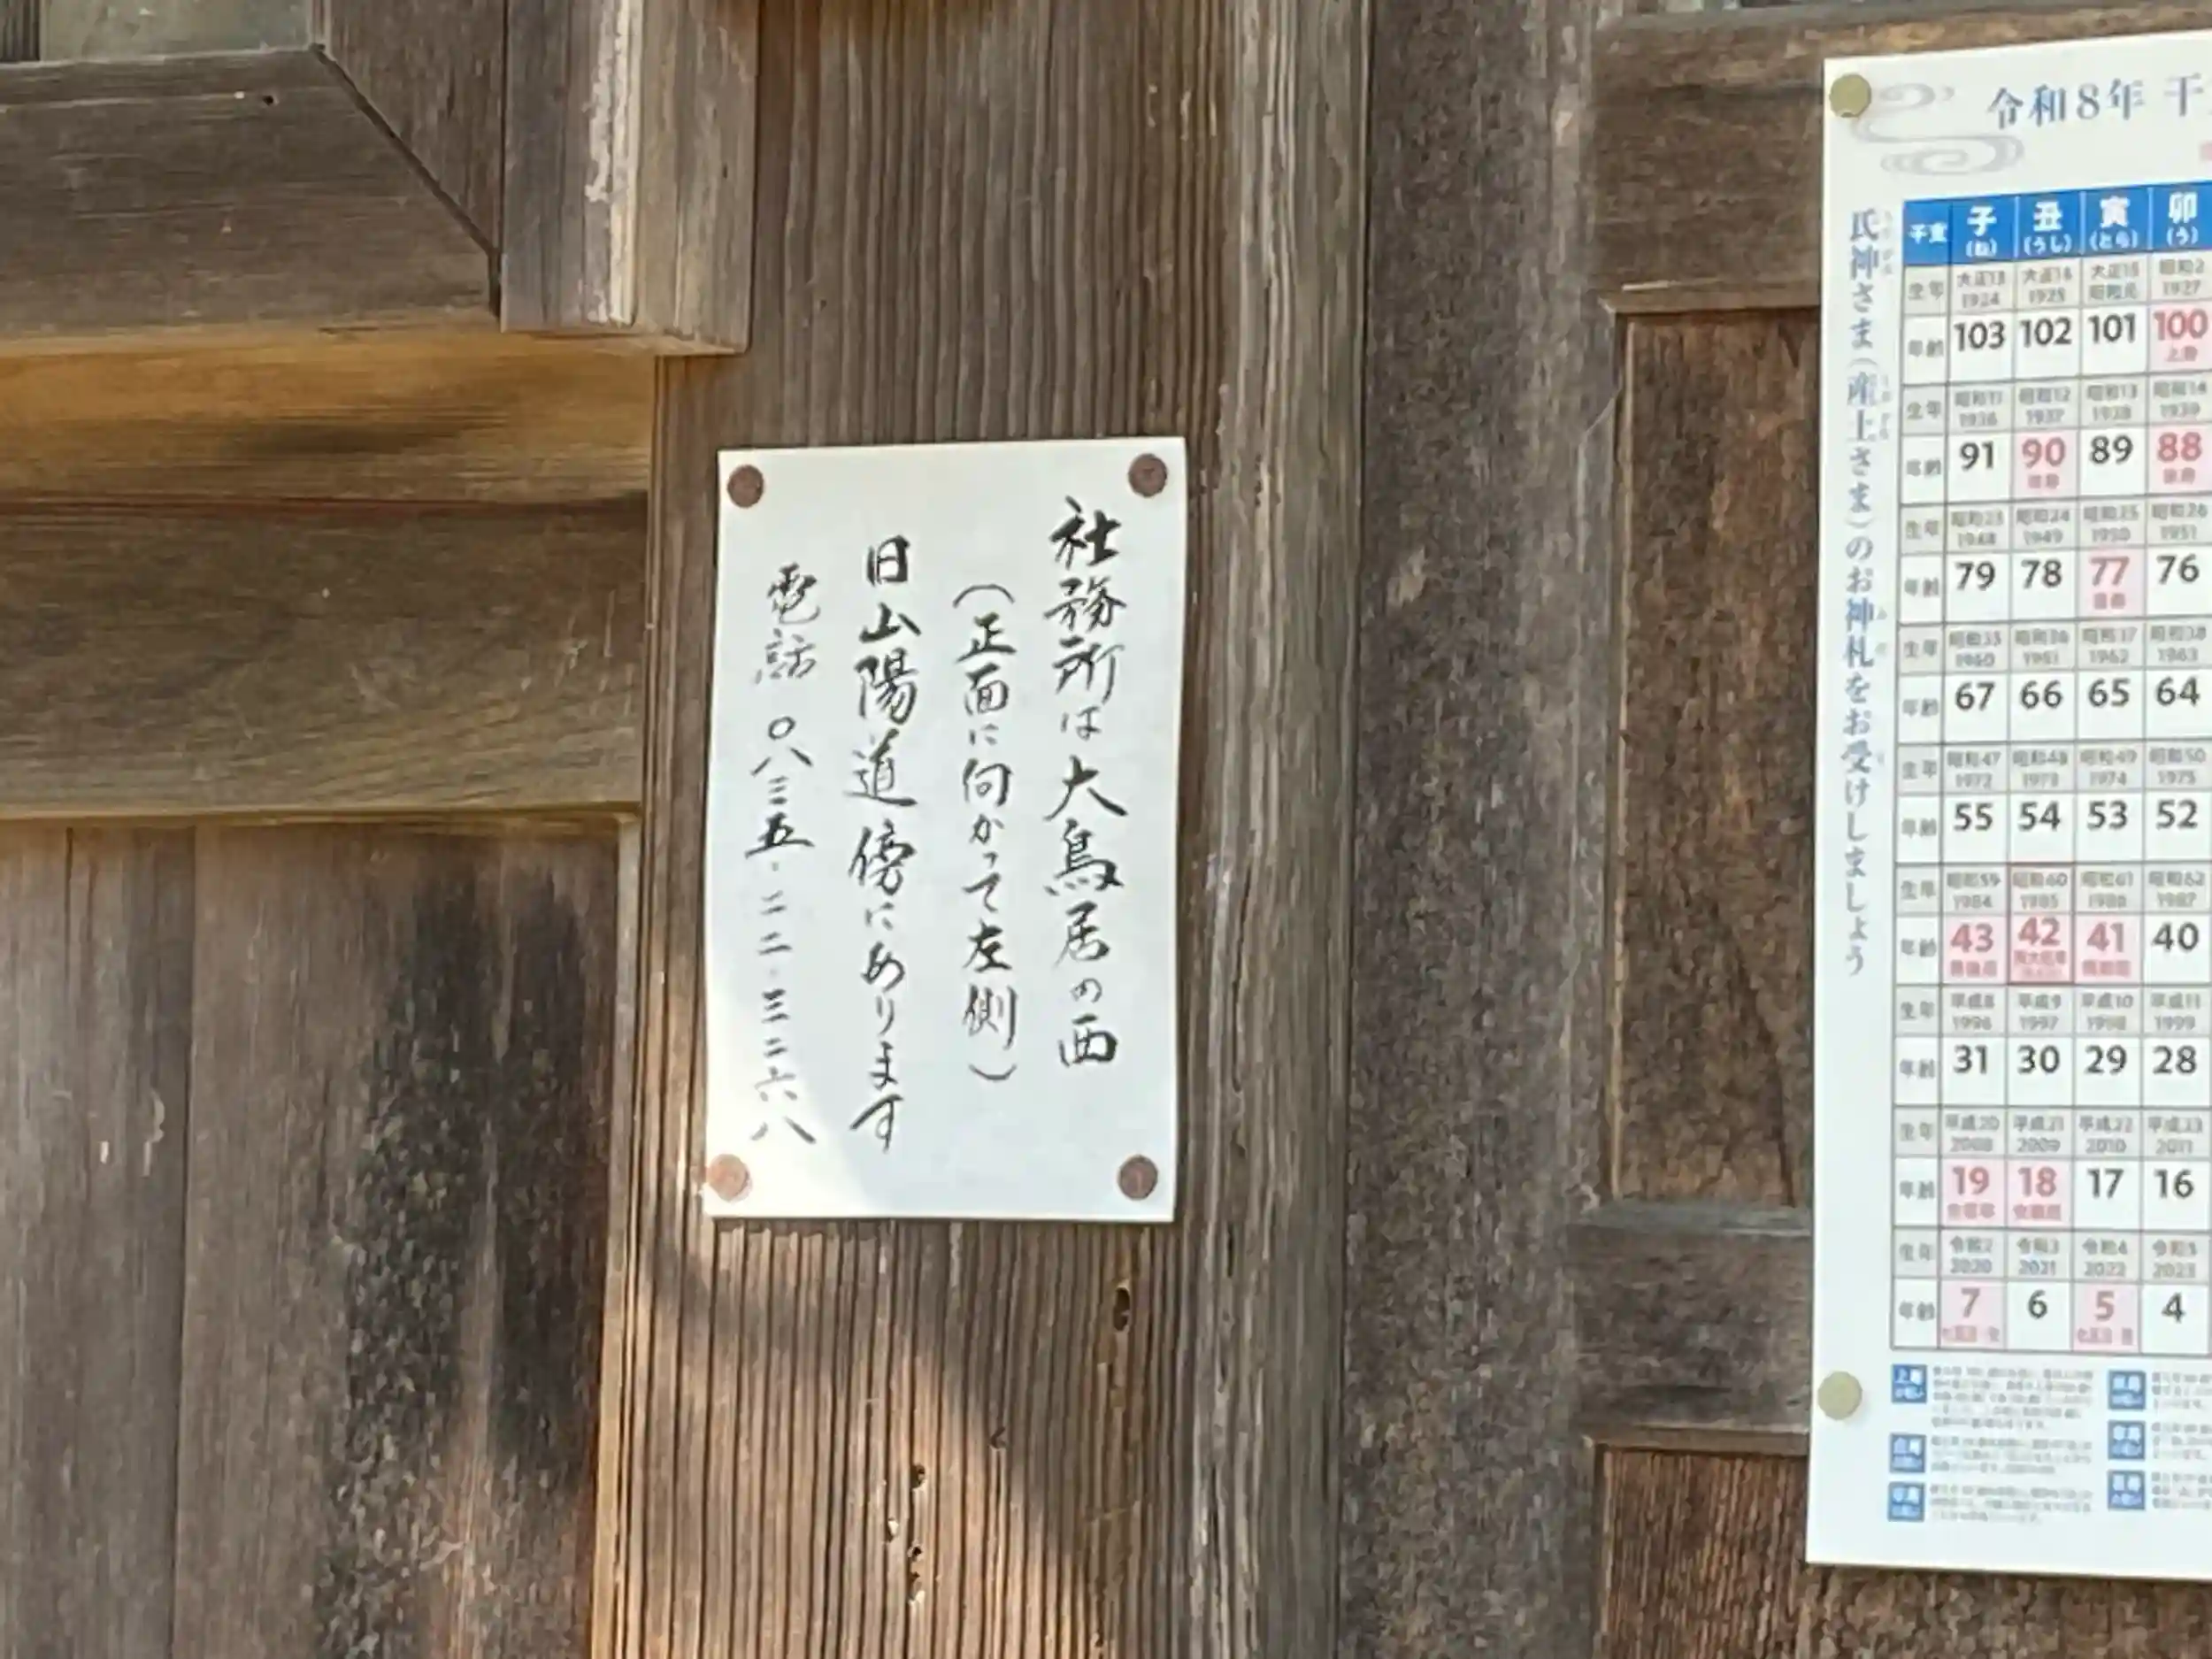 社務所は大鳥居の西
(正面に向かって左側)
旧山陽道傍にあります
電話 〇八三五・二二・三二六八
令和8年 干
氏神さま(産土さま)のお神札をお受けしましょう
干支 子 丑 寅 卯
(ね) (うし) (とら) (う)
生年 大正13 大正14 大正15 昭和2
1924 1925 昭和元 1927
年齢 103 102 101 100
上寿
生年 昭和11 昭和12 昭和13 昭和14
1936 1937 1938 1939
年齢 91 90 89 88
卒寿 米寿
生年 昭和23 昭和24 昭和25 昭和26
1948 1949 1950 1951
年齢 79 78 77 76
喜寿
生年 昭和35 昭和36 昭和37 昭和38
1960 1961 1962 1963
年齢 67 66 65 64
生年 昭和47 昭和48 昭和49 昭和50
1972 1973 1974 1975
年齢 55 54 53 52
生年 昭和59 昭和60 昭和61 昭和62
1984 1985 1986 1987
年齢 43 42 41 40
生年 平成8 平成9 平成10 平成11
1996 1997 1998 1999
年齢 31 30 29 28
生年 平成20 平成21 平成22 平成23
2008 2009 2010 2011
年齢 19 18 17 16
生年 令和2 令和3 令和4 令和5
2020 2021 2022 2023
年齢 7 6 5 4